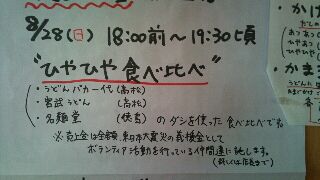 8/28(日) 18:00前〜19:30頃
"ひやひや食べ比べ"
・うどんバカ一代(高松)
・宮武うどん (高松)
・名麺堂 (徳島)のダシを使った食べ比べです。
※売上金は全額、東日本大震災の義援金として
ボランティア活動を行っている仲間達に託します。
(詳しくは店長まで)
かけ
ひや
かま